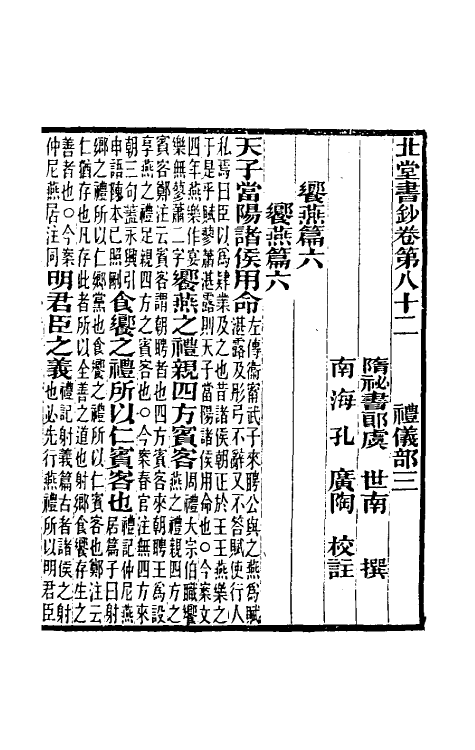 北堂書鈔卷第八十二　禮儀部三
隋祕書郎虞　世南　撰
南海孔　廣陶　校註
饗燕篇六
饗燕篇六
天子當陽諸侯用命左傳衞甯武子來聘公與之燕爲賦
湛露及彤弓不辭又不答賦使行人
私焉曰臣以爲肄業及之也昔諸侯朝正於王王燕樂之
于是乎賦蓼蕭湛露則天子當陽諸侯用命也○今案文
四年燕樂作宴
樂無蓼蕭二字饗燕之禮親四方賓客周禮大宗伯職饗
燕之禮親四方之
賓客鄭注云賓客謂朝聘者也四方賓客來朝聘王爲設
享燕之禮足親四方之賓客也○今案春官注無四方來
朝三句蓋永興引
申語陳本已照刪食饗之禮所以仁賓客也禮記仲尼燕
居篇子曰射
鄉之禮所以仁鄉黨也食饗之禮所以仁賓客也鄭注云
仁猶存也凡存此者所以全善之道也射鄉食饗存生之
善者也○今案
仲尼燕居注同明君臣之義禮記射義篇古者諸侯之射
也必先行燕禮所以明君臣